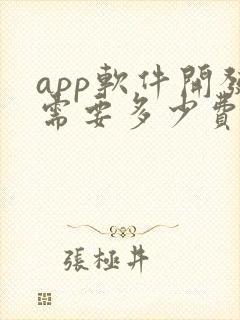 app軟件開發
需要多少費
張極井